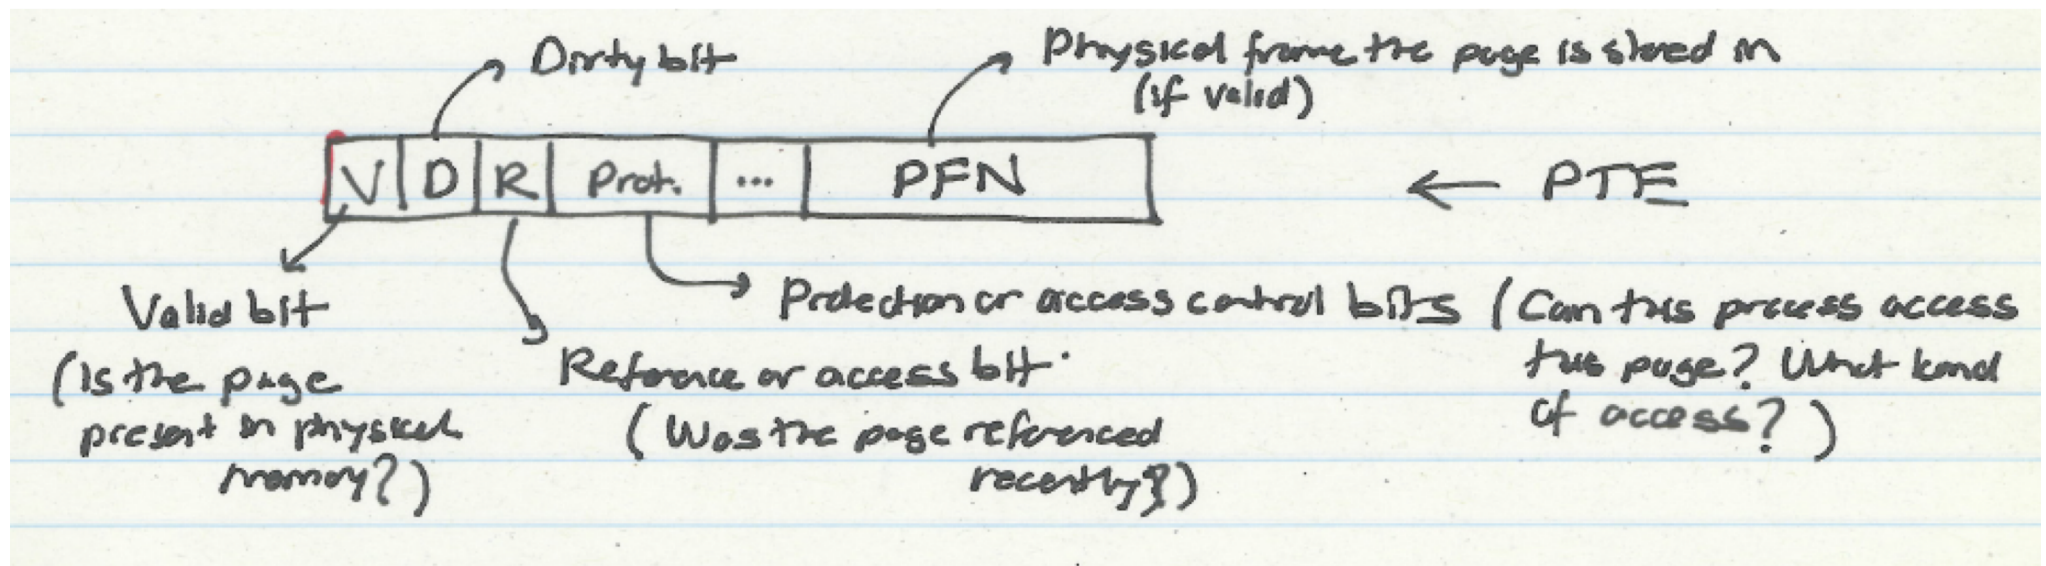 Dirty bit
Physical frame the page is stored in
(if valid)
V D R Prot. ... PFN
← PTE
Valid bit
(Is the page
present in physical
memory?)
Reference or access bit.
(Was the page referenced
recently?)
Protection or access control bits (Can this process access
this page? What kind
of access?)